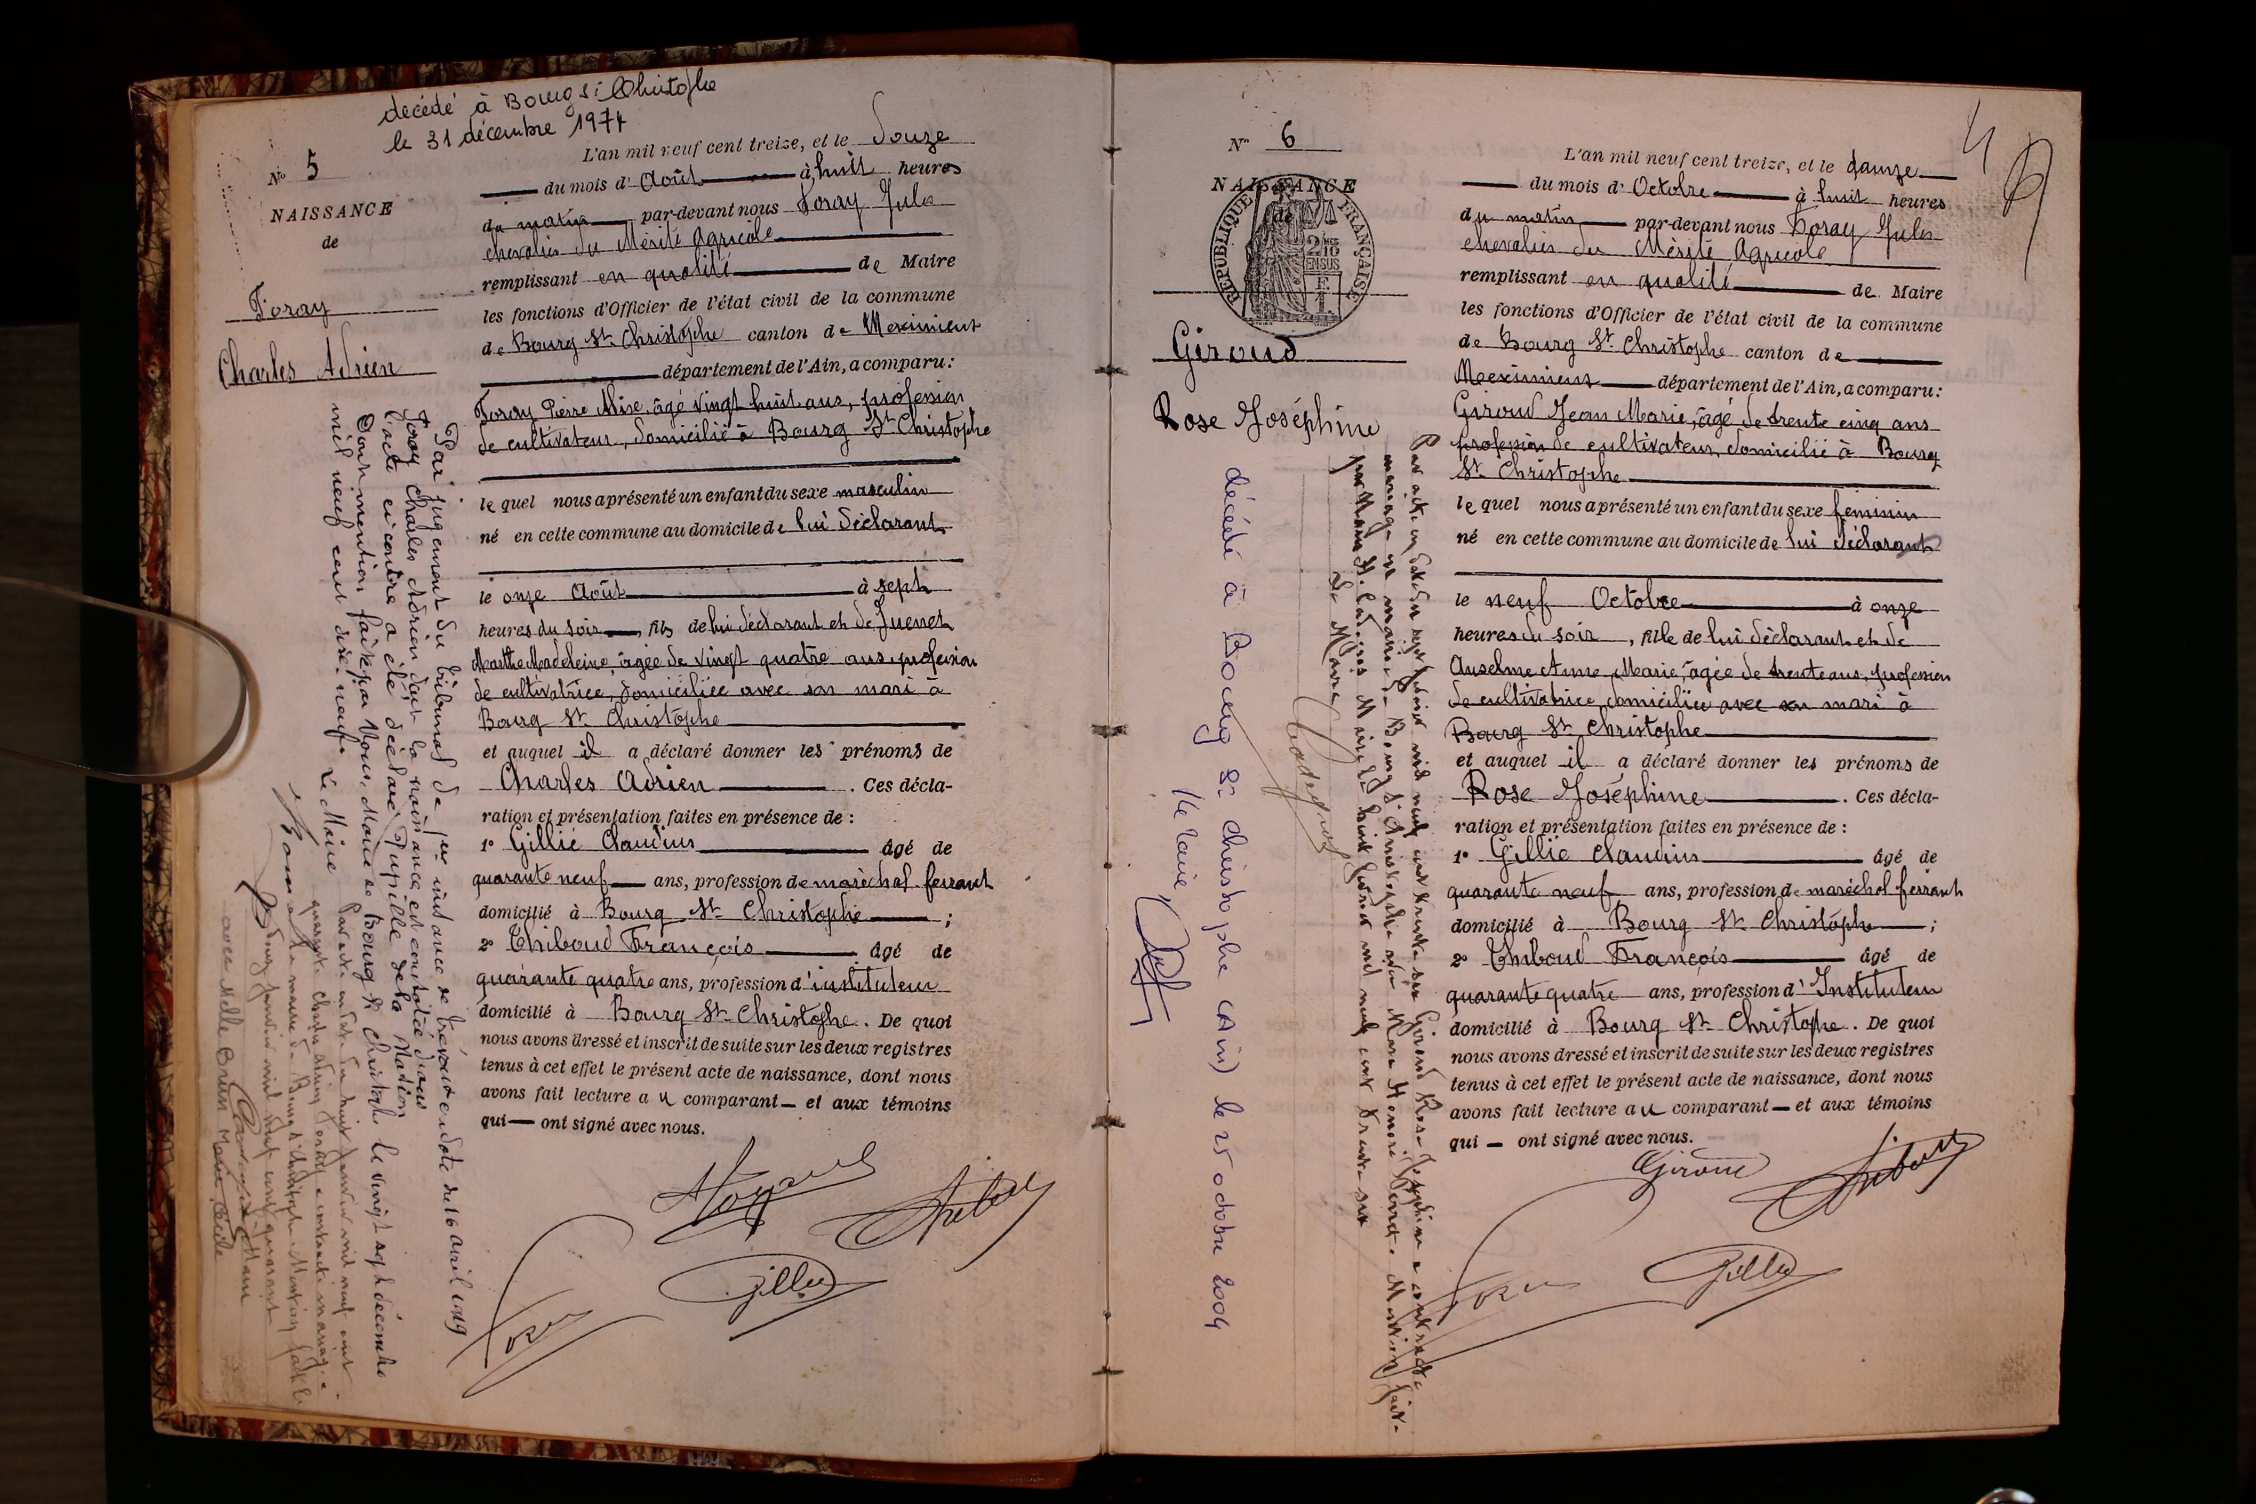 decédé à Bourg St Christophe
le 31 décembre 1974
No 5
NAISSANCE
de
Foray
Charles Adrien
L'an mil neuf cent treize, et le Douze
du mois d' Août à huit heures
du matin par-devant nous Foray Jules
chevalier du Mérite Agricole
remplissant en qualité de Maire
les fonctions d'Officier de l'état civil de la commune
de Bourg St Christophe canton de Meximieux
département de l'Ain, a comparu:
Foray Pierre Alise, âgé vingt huit ans, profession
de cultivateur, domicilié à Bourg St Christophe
lequel nous a présenté un enfant du sexe masculin
né en cette commune au domicile de lui déclarant
le onze Août à sept
heures du soir, fils de lui déclarant et de Juenet
Marthe Madeleine, âgée de vingt quatre ans, profession
de cultivatrice, domiciliée avec son mari à
Bourg St Christophe
et auquel il a déclaré donner les prénoms de
Charles Adrien. Ces décla-
ration et présentation faites en présence de :
1o Gillié Claudius âgé de
quarante neuf ans, profession de maréchal ferrant
domicilié à Bourg St Christophe ;
2o Thiboud François âgé de
quarante quatre ans, profession d'instituteur
domicilié à Bourg St Christophe. De quoi
nous avons dressé et inscrit de suite sur les deux registres
tenus à cet effet le présent acte de naissance, dont nous
avons fait lecture au comparant et aux témoins
qui ont signé avec nous.
Foray
Gillié
Par jugement du tribunal de 1re instance de Trévoux en date du 16 avril 1919
Foray Charles Adrien dont la naissance est constatée dans
l'acte ci contre a été déclaré Pupille de la Nation
Dont mention faite par Nous, Maire de Bourg St Christophe le vingt sept décembre
mil neuf cent dix neuf. Le Maire
Par acte en date du huit janvier mil neuf cent
quarante Charles Adrien Foray a contracté mariage à
la mairie de Bourg St Christophe. Mention faite le
janvier mil neuf cent quarante
avec Melle Brun Marie Cécile
No 6
NAISSANCE
de
REPUBLIQUE FRANÇAISE
Giroud
Rose Joséphine
L'an mil neuf cent treize, et le
du mois d' Octobre à huit heures
du matin par-devant nous Foray Jules
chevalier du Mérite Agricole
remplissant en qualité de Maire
les fonctions d'Officier de l'état civil de la commune
de Bourg St Christophe canton de
Meximieux département de l'Ain, a comparu:
Giroud Jean Marie, âgé de trente cinq ans
profession de cultivateur, domicilié à Bourg
St Christophe
lequel nous a présenté un enfant du sexe féminin
né en cette commune au domicile de lui déclarant
le neuf Octobre à onze
heures du soir, fille de lui déclarant et de
Anselme Anne Marie, âgée de trente ans, profession
de cultivatrice, domiciliée avec son mari à
Bourg St Christophe
et auquel il a déclaré donner les prénoms de
Rose Joséphine. Ces décla-
ration et présentation faites en présence de :
1o Gillié Claudius âgé de
quarante neuf ans, profession de maréchal ferrant
domicilié à Bourg St Christophe ;
2o Thiboud François âgé de
quarante quatre ans, profession d'Instituteur
domicilié à Bourg St Christophe. De quoi
nous avons dressé et inscrit de suite sur les deux registres
tenus à cet effet le présent acte de naissance, dont nous
avons fait lecture au comparant et aux témoins
qui ont signé avec nous.
Giroud
Gillié
Par acte en date du sept février mil neuf cent trente six Giroud Rose Joséphine a contracté
mariage en mairie de Bourg St Christophe avec Henri. Mention faite
par Nous Maire le vingt février mil neuf cent trente six
Le Maire
décédé à Bourg St Christophe (Ain) le 25 octobre 2004
Le Maire,